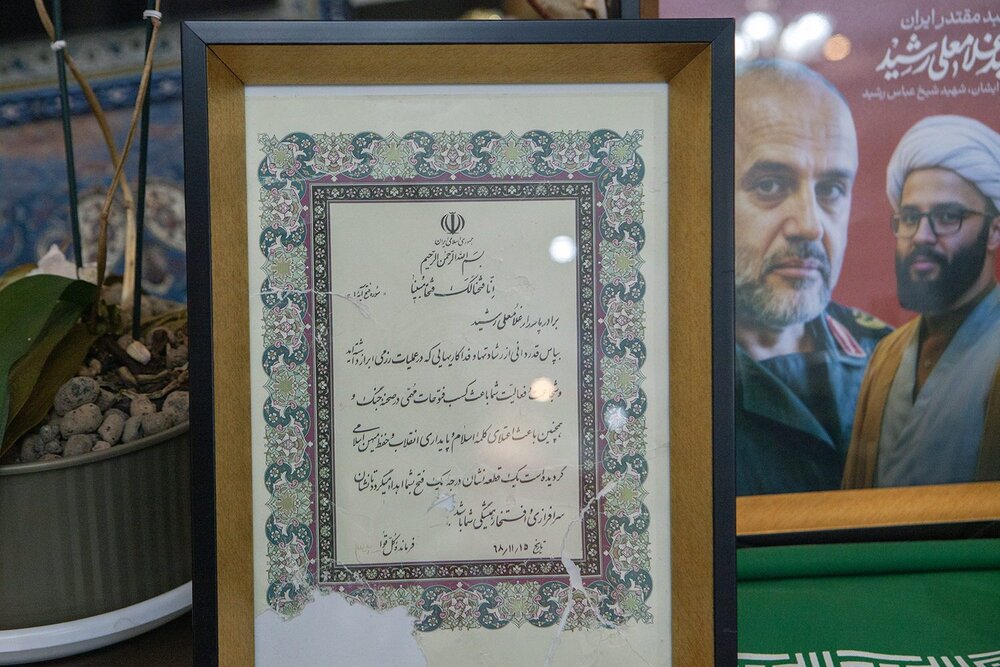 جمهوری اسلامی ایران
بسم الله الرحمن الرحیم
انا فتحنا لک فتحا مبینا
سوره فتح آیه ۱
برادر پاسدار غلامعلی رشید
بپاس قدردانی از رشادتها و فداکاریهائی که در عملیات رزمی ابراز داشته‌اید
و فعالیت شما باعث کسب فتوحات مهمی در صحنه جنگ و
همچنین باعث اعتلای کلمه اسلام و پایداری انقلاب و حفظ میهن اسلامی
گردیده است یک قطعه نشان درجه یک فتح بشما اهدا میگردد تا نشان
سرافرازی و افتخار همیشگی شما باشد
تاریخ ۶۸/۱۱/۱۵
فرمانده کل قوا
مقتدر ایران
غلامعلی رشید
ایشان، شهید شیخ عباس رشید